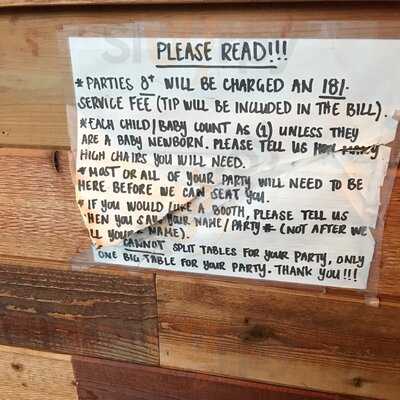 PLEASE READ!!!
* PARTIES 8+ WILL BE CHARGED AN 18%
SERVICE FEE (TIP WILL BE INCLUDED IN THE BILL).
* EACH CHILD/BABY COUNT AS (1) UNLESS THEY
ARE A BABY NEWBORN. PLEASE TELL US
HIGH CHAIRS YOU WILL NEED.
* MOST OR ALL OF YOUR PARTY WILL NEED TO BE
HERE BEFORE WE CAN SEAT YOU.
* IF YOU WOULD LIKE A BOOTH, PLEASE TELL US
HEN YOU SAY YOUR NAME/PARTY # (NOT AFTER WE
LL YOUR NAME).
CANNOT SPLIT TABLES FOR YOUR PARTY, ONLY
ONE BIG TABLE FOR YOUR PARTY. THANK YOU!!!